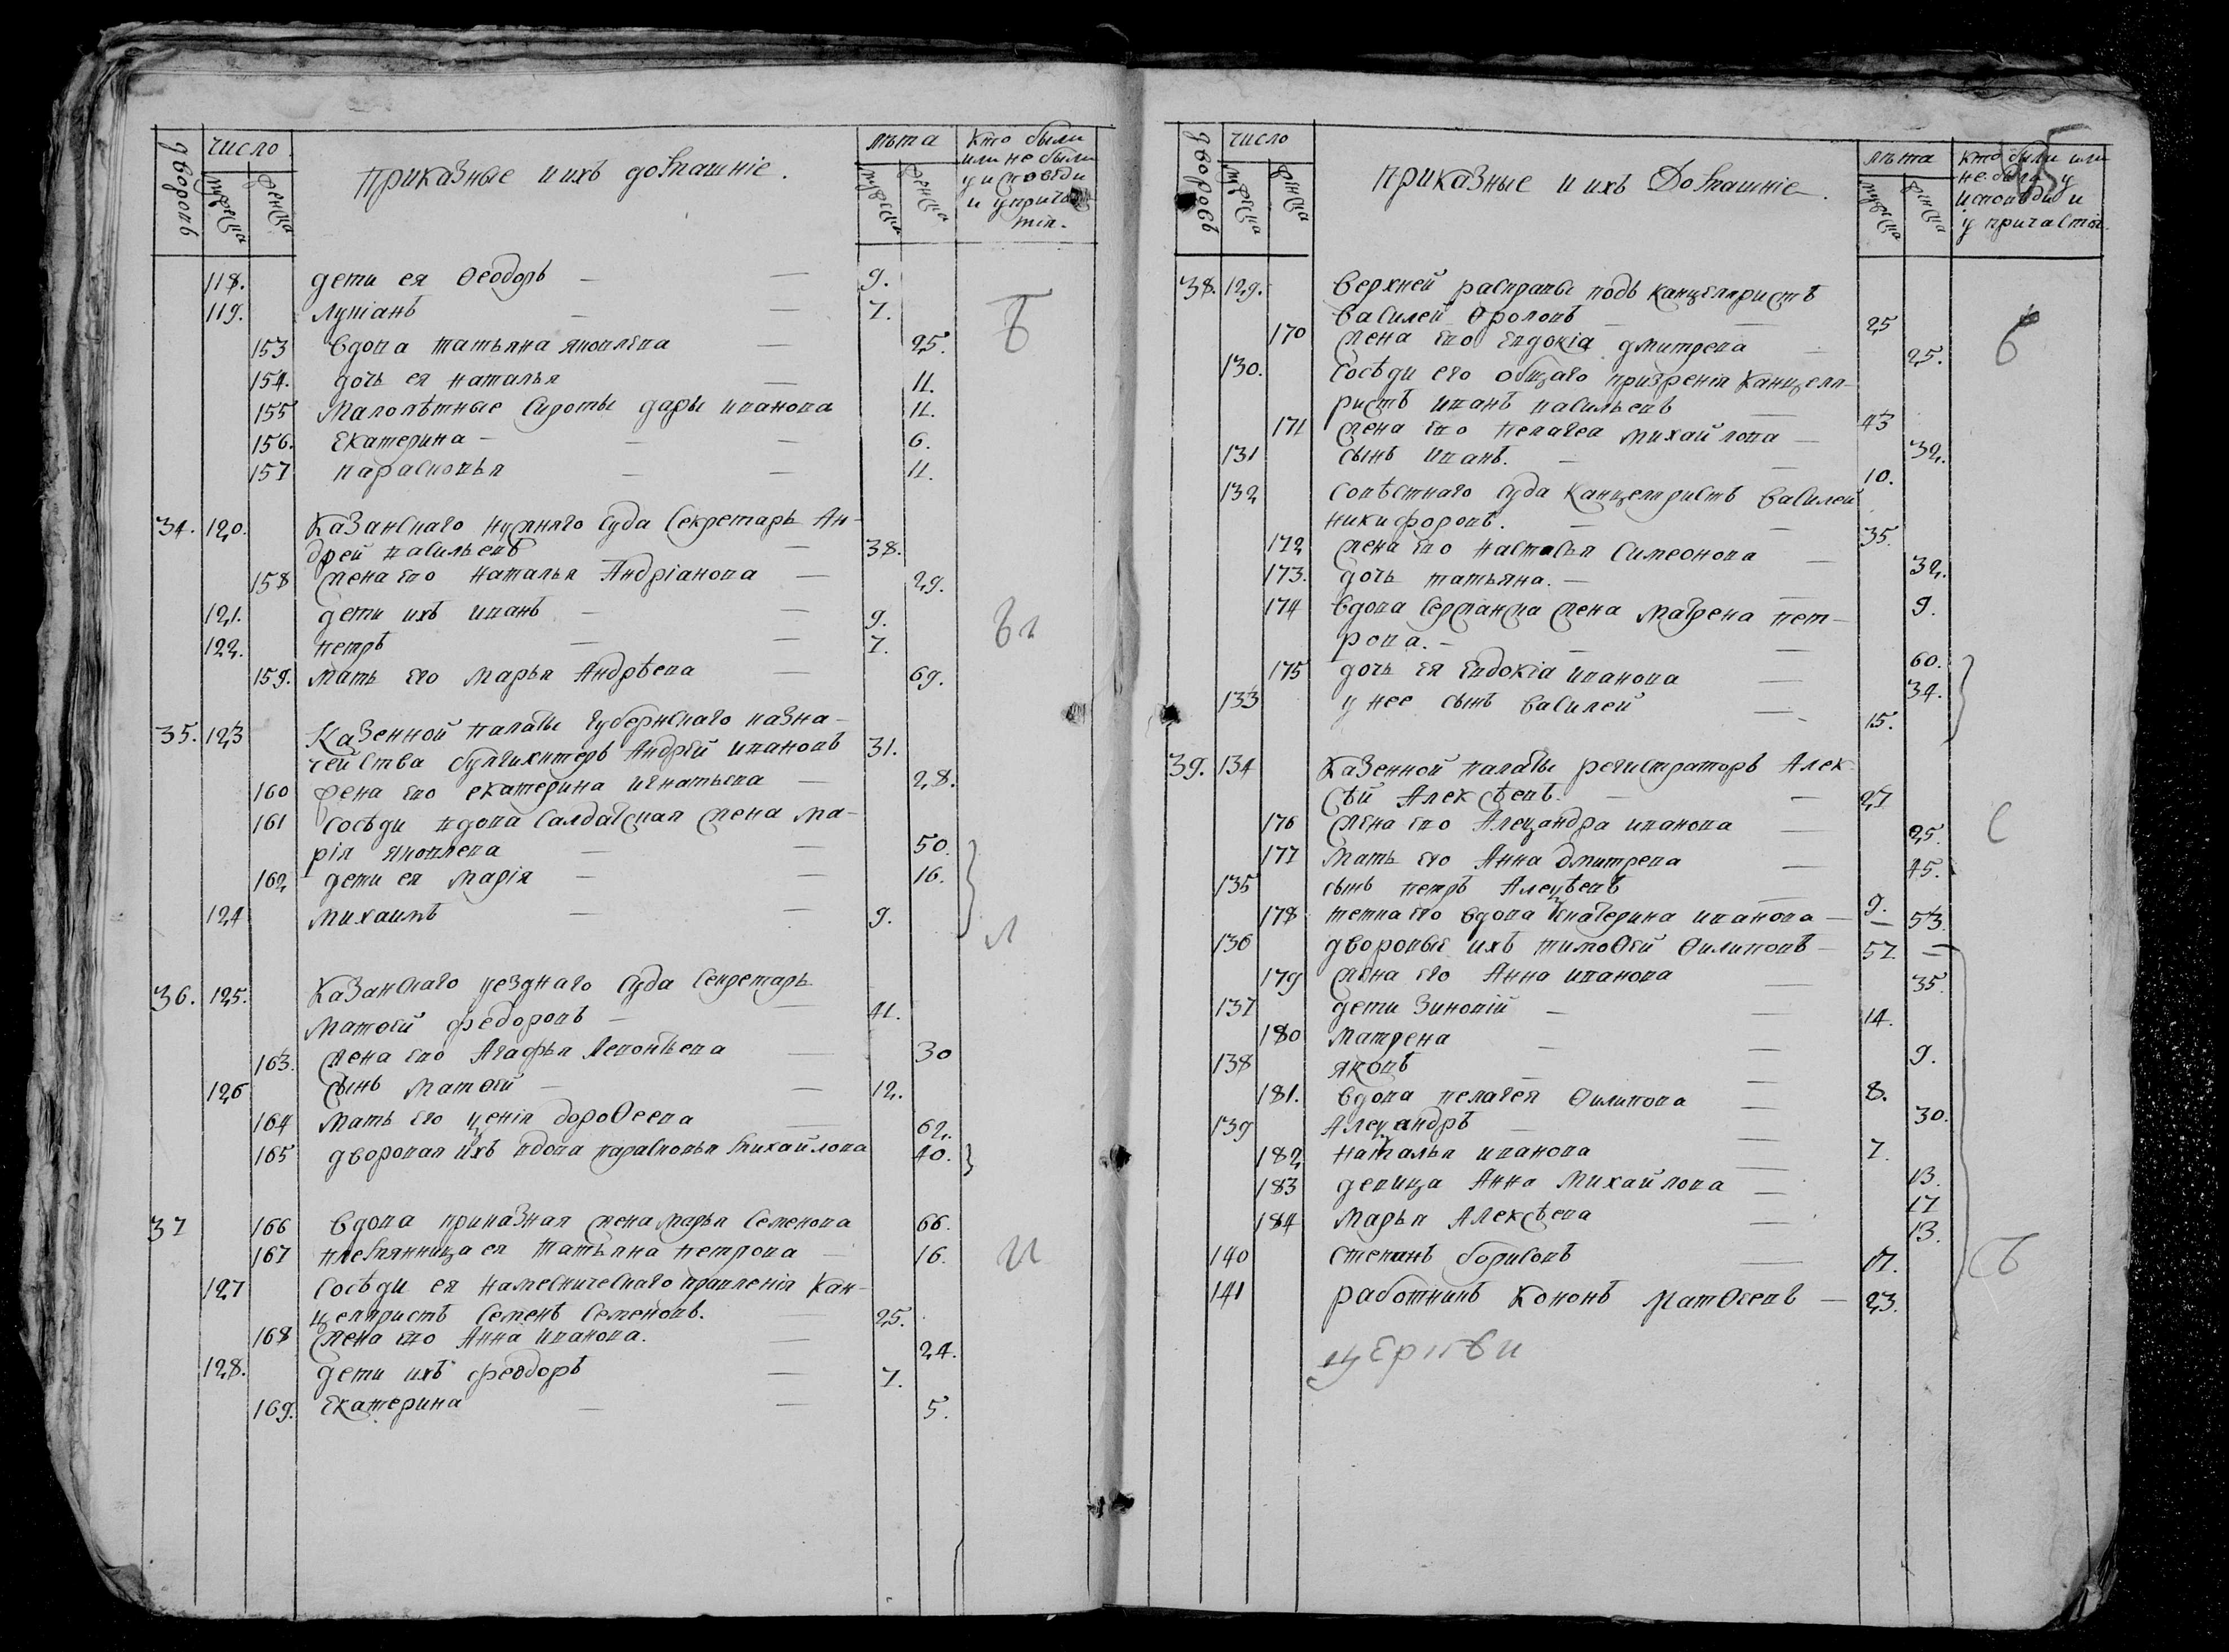 дворовъ число мужеска женска приказные и ихъ домашніе. лѣта мужеска женска кто были
или не были
у исповѣди
и у прича-
тія.
118. дети ея Ѳеодоръ — — 9.
119. Лукіанъ — — 7.
153 вдова татьяна яковлева — 25.
154. дочь ея наталья — 11.
155 Малолѣтные сироты дарья иванова 11.
156. екатерина — — — 6.
157 парасковья — — 11.
34. 120. Казанскаго нужняго суда секретарь Ан-
дрей васильевъ — 38.
158 жена его наталья Андріанова — 29.
121. дети ихъ иванъ — — 9.
122. петръ — — 7.
159. мать его марья Андрѣева — 69.
35. 123 Казенной палаты губернскаго казна-
чейства бухгалтеръ Андрей ивановъ 31.
160 жена его екатерина игнатьева — 28.
161 сосѣди вдова салдатская жена ма-
рія яковлева — — 50.
162 дети ея марія — — 16.
124 михаилъ — — 9.
36. 125. Казанскаго уезднаго суда секретарь
матѳей федоровъ — — 41.
163. жена его Агафья Леонтьева — 30
126 сынъ матѳей — — 12.
164 мать его ксенія дороѳеева — 62.
165 дворовая ихъ вдова парасковья михайлова 40.
37 166 вдова приказная жена марья семенова 66.
167 племянница ея татьяна петрова — 16.
127 сосѣди ея наместническаго правленія кан-
целяристъ семенъ семеновъ. 25.
168 жена его Анна иванова. — 24.
128. дети ихъ феодоръ — 7.
169. екатерина — — 5.
дворовъ число мужеска женска приказные и ихъ домашніе. лѣта мужеска женска кто были или
не были у
исповѣди и
у причастія.
38. 129. верхней расправы подъ канцеляристъ
василей Ѳроловъ — — 25
170 жена его евдокіа дмитрева — 25.
130. сосѣди его общаго призренія канцеля-
ристъ иванъ васильевъ — 43
171 жена его пелагеа михайлова — 32.
131 сынъ иванъ. — — 10.
132 совѣстнаго суда канцеляристъ василей
никифоровъ. — — 35.
172 жена его настасья симеонова — 32.
173. дочь татьяна. — — 9.
174 вдова сержанска жена матрена пет-
рова. — — — 60.
175 дочь ея евдокіа иванова — 34.
133 у нее сынъ василей — 15.
39. 134 Казенной палаты регистраторъ Алек-
сѣй Алексѣевъ. — — 27
176 жена его Алеѯандра иванова — 25.
177 мать его Анна дмитрева — 45.
135 сынъ петръ Алеѯѣевъ — 9.
178 тетка его вдова екатерина иванова — — 53.
136 дворовые ихъ тимоѳей Ѳилиповъ — 57 —
179 жена его Анна иванова — 35.
137 дети Зиновій — — 14.
180 матрена — — 9.
138 яковъ — — 8.
181. вдова пелагея Ѳилипова — 30.
139 Алеѯандръ — — 7.
182 наталья иванова — 13.
183 девица Анна михайлова — 17
184 марья Алексѣева — 13.
140 степанъ борисовъ — 17.
141 работникъ кононъ матѳеевъ — 23.
церкви